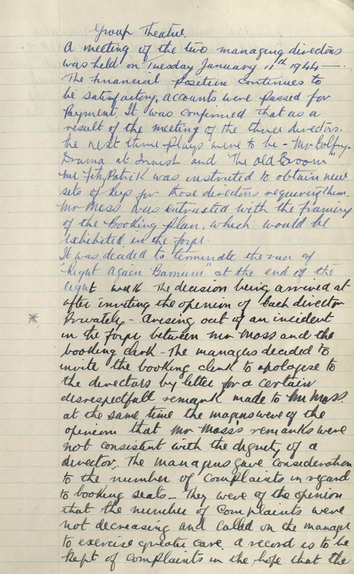 Group Theatre
A meeting of the two managing directors
was held on Tuesday January 11th 1944 —
The Financial Position continues to
be satisfactory, accounts were passed for
Payment. It was confirmed that as a
result of the meeting of the three directors.
The next three plays were to be - Mr Bolfry.
Drama at Inish and The Old Broom
Mr Fitzpatrick was instructed to obtain new
sets of keys for those directors requiring them.
Mr Moss was entrusted with the framing
of the booking plan, which would be
exhibited in the foyer
It was decided to terminate the run of
"Right Again Barnum" at the end of the
eight week the decision being arrived at
after inviting the opinion of each director
Privately - Arising out of an incident
in the foyer between Mr Moss and the
booking clerk - The managers decided to
invite the booking clerk to apologise to
the directors by letter for a certain
disrespectfull remark made to Mr Moss.
at the same time the were of the
opinion that Mr Moss's remarks were
not consistent with the dignity of a
director. The managers gave consideration
to the number of complaints in regard
to booking seats - They were of the opinion
that the number of complaints were
not decreasing and called on the manager
to exercise greater care. A record is to be
kept of complaints in the hope that the